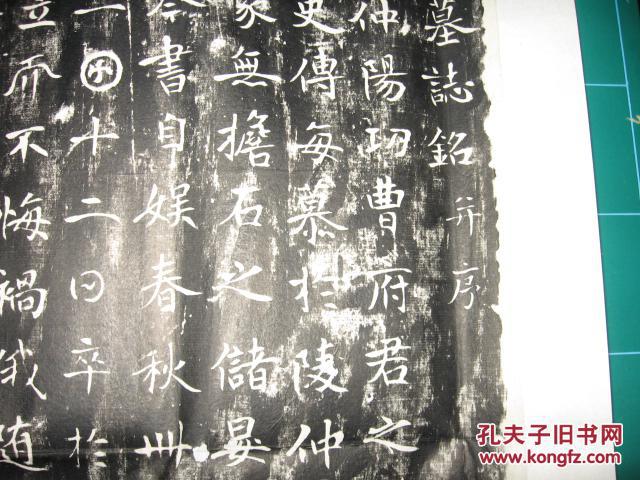 墓誌銘并序
仲陽功曹府君之
史傳每慕扵陵仲
家無擔石之儲晏
書自娱春秋卌
一囝十二日卒扵
立而不悔禍我随
孔夫子旧书网
www.kongfz.com